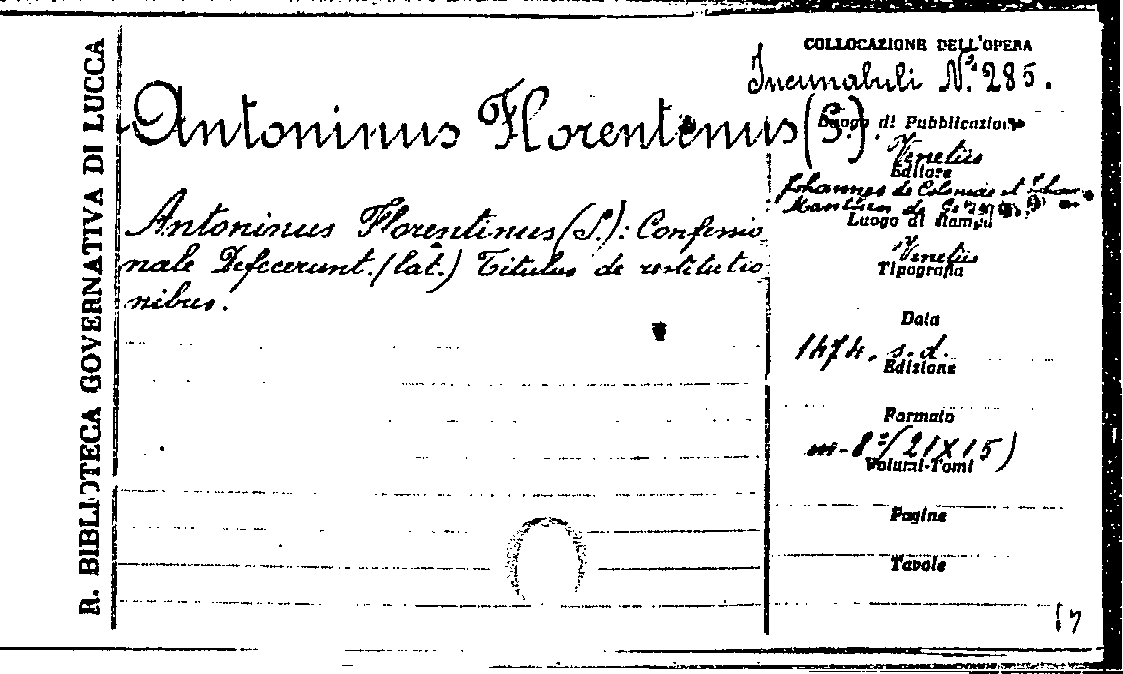 R. BIBLIOTECA GOVERNATIVA DI LUCCA
COLLOCAZIONE DELL'OPERA
Incunabuli N.º 285.
Antoninus Florentinus (S.).
Luogo di Pubblicazione
Venetiis
Editore
Johannes de Colonia et Johan.
Manthen de
Luogo di Stampa
Venetiis
Tipografia
Antoninus Florentinus (S.): Confessio_
nale Defecerunt. (lat.) Titulus de restitutio
nibus.
Data
1474. s.d.
Edizione
Formato
m-8º (21X15)
Volumi-Tomi
Pagine
Tavole
17